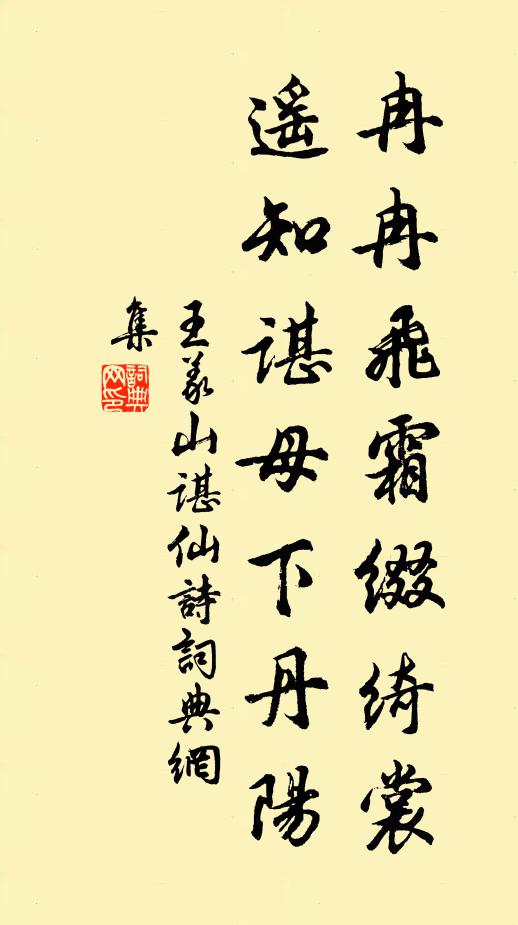 冉冉飛霜綴綺裳
遥知諶母下丹陽
王义山諶仙詩詞典網
集
詞典网印